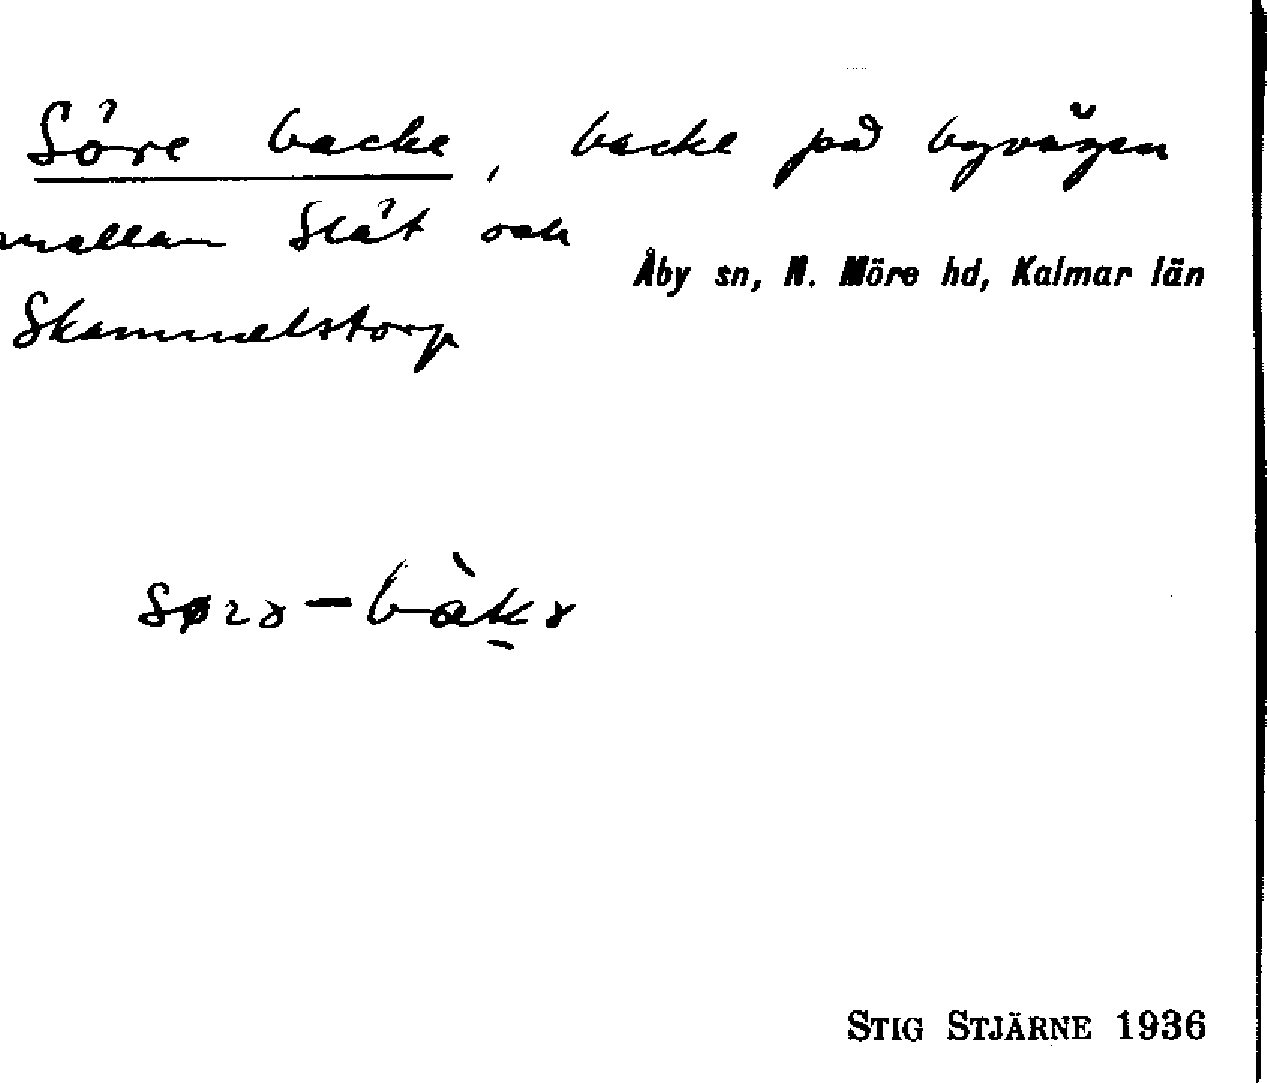 Söre backe, backe på byvägen
mellan Slät och
Åby sn, N. Möre hd, Kalmar län
Skammelstorp
STIG STJÄRNE 1936